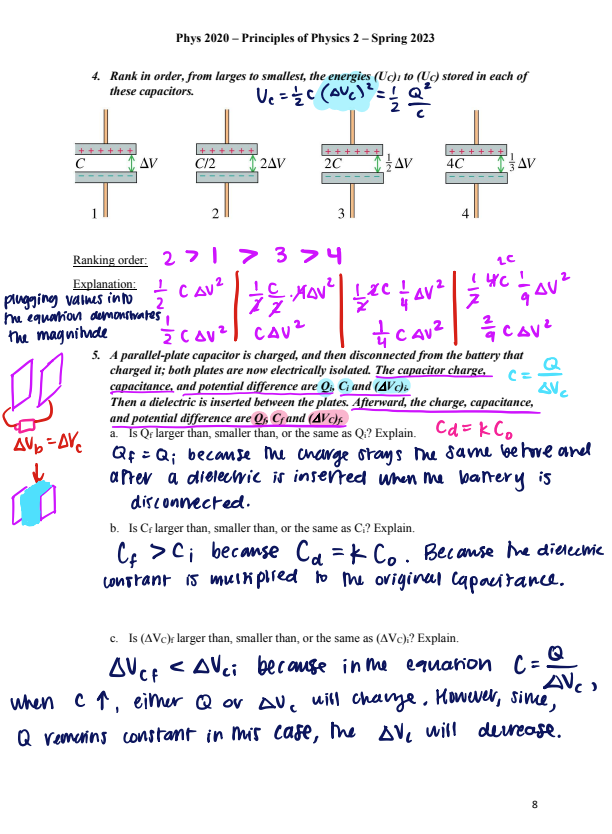 Phys 2020 – Principles of Physics 2 – Spring 2023
4. Rank in order, from larges to smallest, the energies (UC)1 to (UC) stored in each of
these capacitors.
Uc = 1/2 C (ΔVc)² = 1/2 Q²/C
+ + + + + + +
+ + + + + + +
+ + + + + + +
+ + + + + + +
C ΔV
C/2 2ΔV
2C 1/2 ΔV
4C 1/3 ΔV
1
2
3
4
Ranking order: 2 > 1 > 3 > 4
Explanation:
plugging values into
the equation demonstrates
the magnitude
1/2 C ΔV²
1/2 C ΔV²
1/2 C/2 · 4ΔV²
C ΔV²
1/2 2C 1/4 ΔV²
1/4 C ΔV²
2C
1/2 4C 1/9 ΔV²
2/9 C ΔV²
5. A parallel-plate capacitor is charged, and then disconnected from the battery that
charged it; both plates are now electrically isolated. The capacitor charge,
capacitance, and potential difference are Qi, Ci and (ΔVC)i.
C = Q/ΔVc
Then a dielectric is inserted between the plates. Afterward, the charge, capacitance,
and potential difference are Qf, Cf and (ΔVC)f.
ΔVb = ΔVc
a. Is Qf larger than, smaller than, or the same as Qi? Explain.
Cd = k Co
Qf = Qi because the charge stays the same before and
after a dielectric is inserted when the battery is
disconnected.
b. Is Cf larger than, smaller than, or the same as Ci? Explain.
Cf > Ci because Cd = k Co. Because the dielectric
constant is multiplied to the original capacitance.
c. Is (ΔVC)f larger than, smaller than, or the same as (ΔVC)i? Explain.
ΔVcf < ΔVci because in the equation C = Q/ΔVc,
when C ↑, either Q or ΔVc will change. However, since,
Q remains constant in this case, the ΔVc will decrease.
8